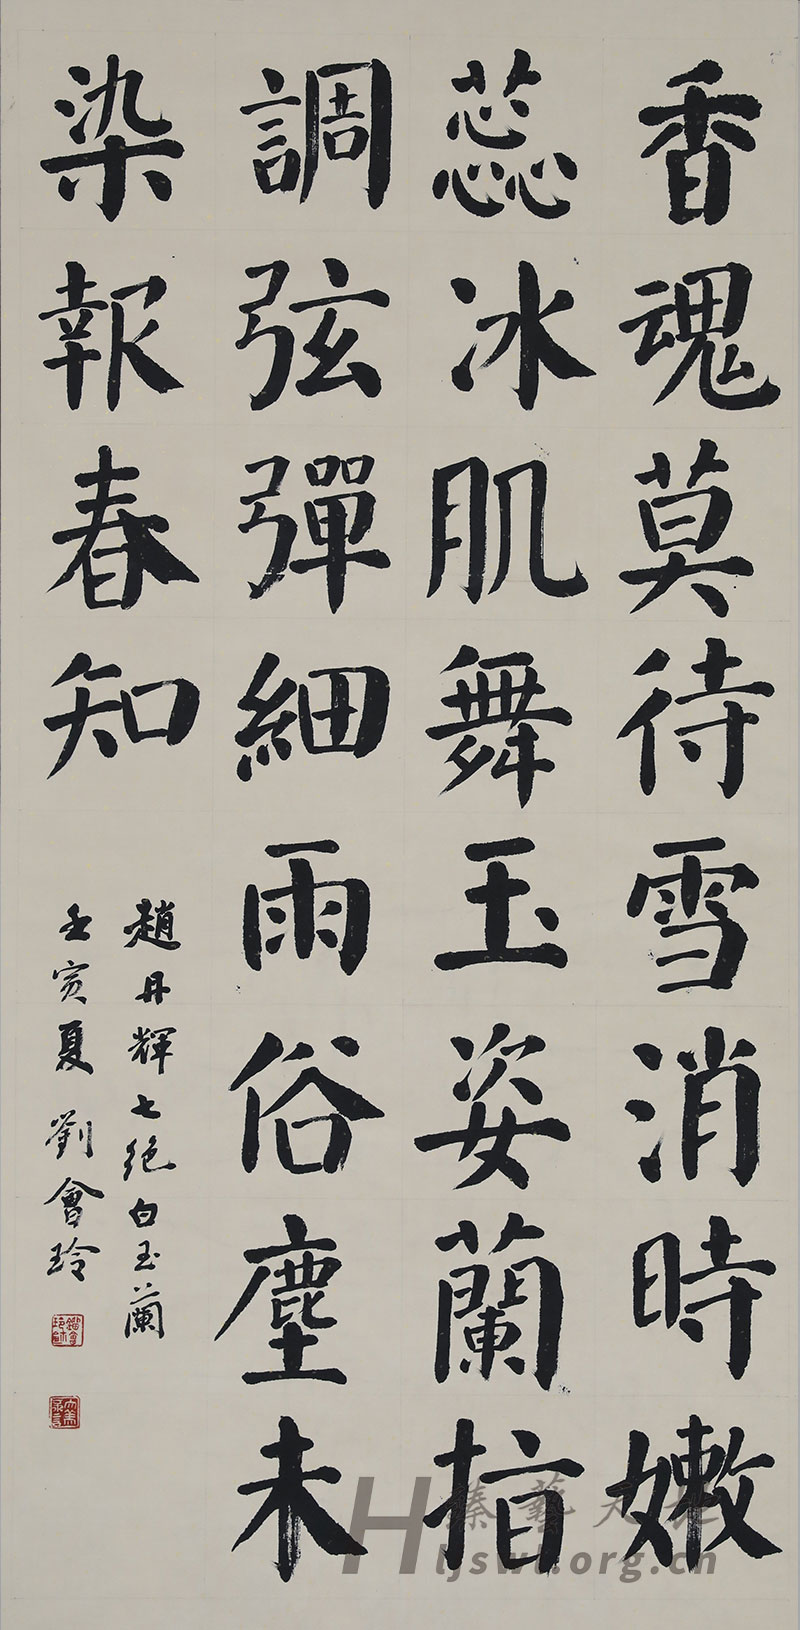 香魂莫待雪消時嫩
蕊冰肌舞玉姿蘭指
調弦彈細雨俗塵未
染報春知
趙丹輝七絕白玉蘭
壬寅夏 劉會玲
臻藝天地
Hljswl.org.cn